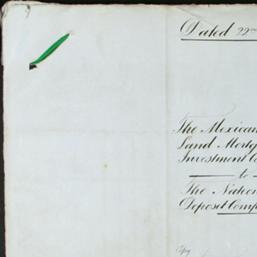 Dated 22nd
The Mexican
Land Mortg
Investment Co
to
The Nation
Deposit Comp